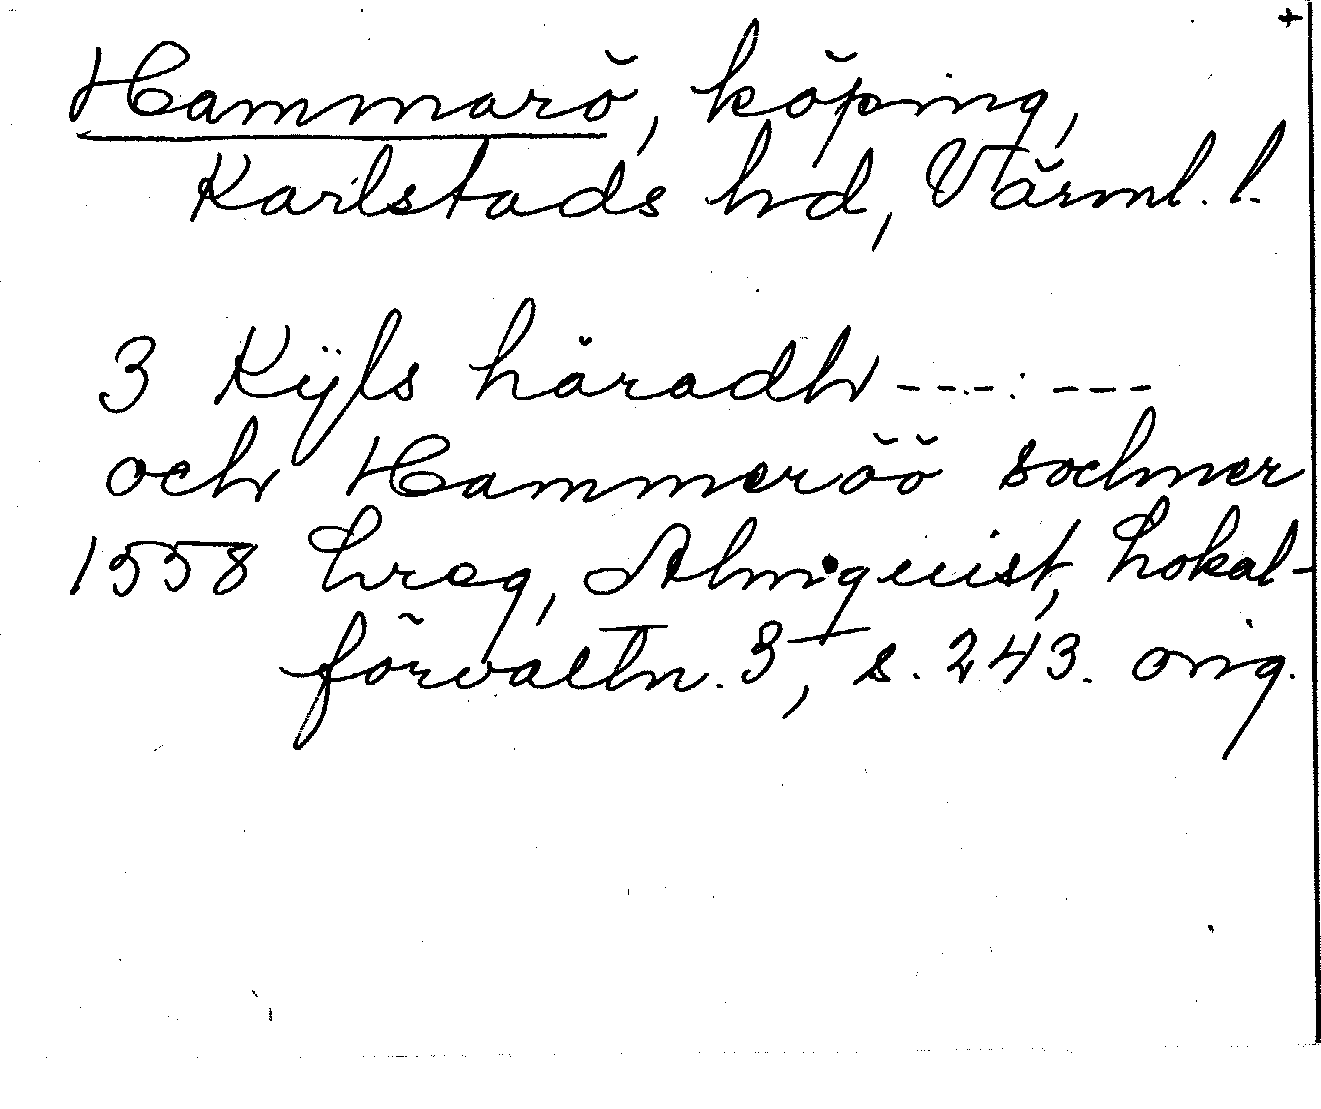 +
Hammarö, köping,
Karlstads hd, Värml. l.
3 Kÿls häradh - - - - : - - -
och Hammeröö sochner
1558 Lreg, Almquist, Lokal-
förvaltn. 3, s. 243. orig.